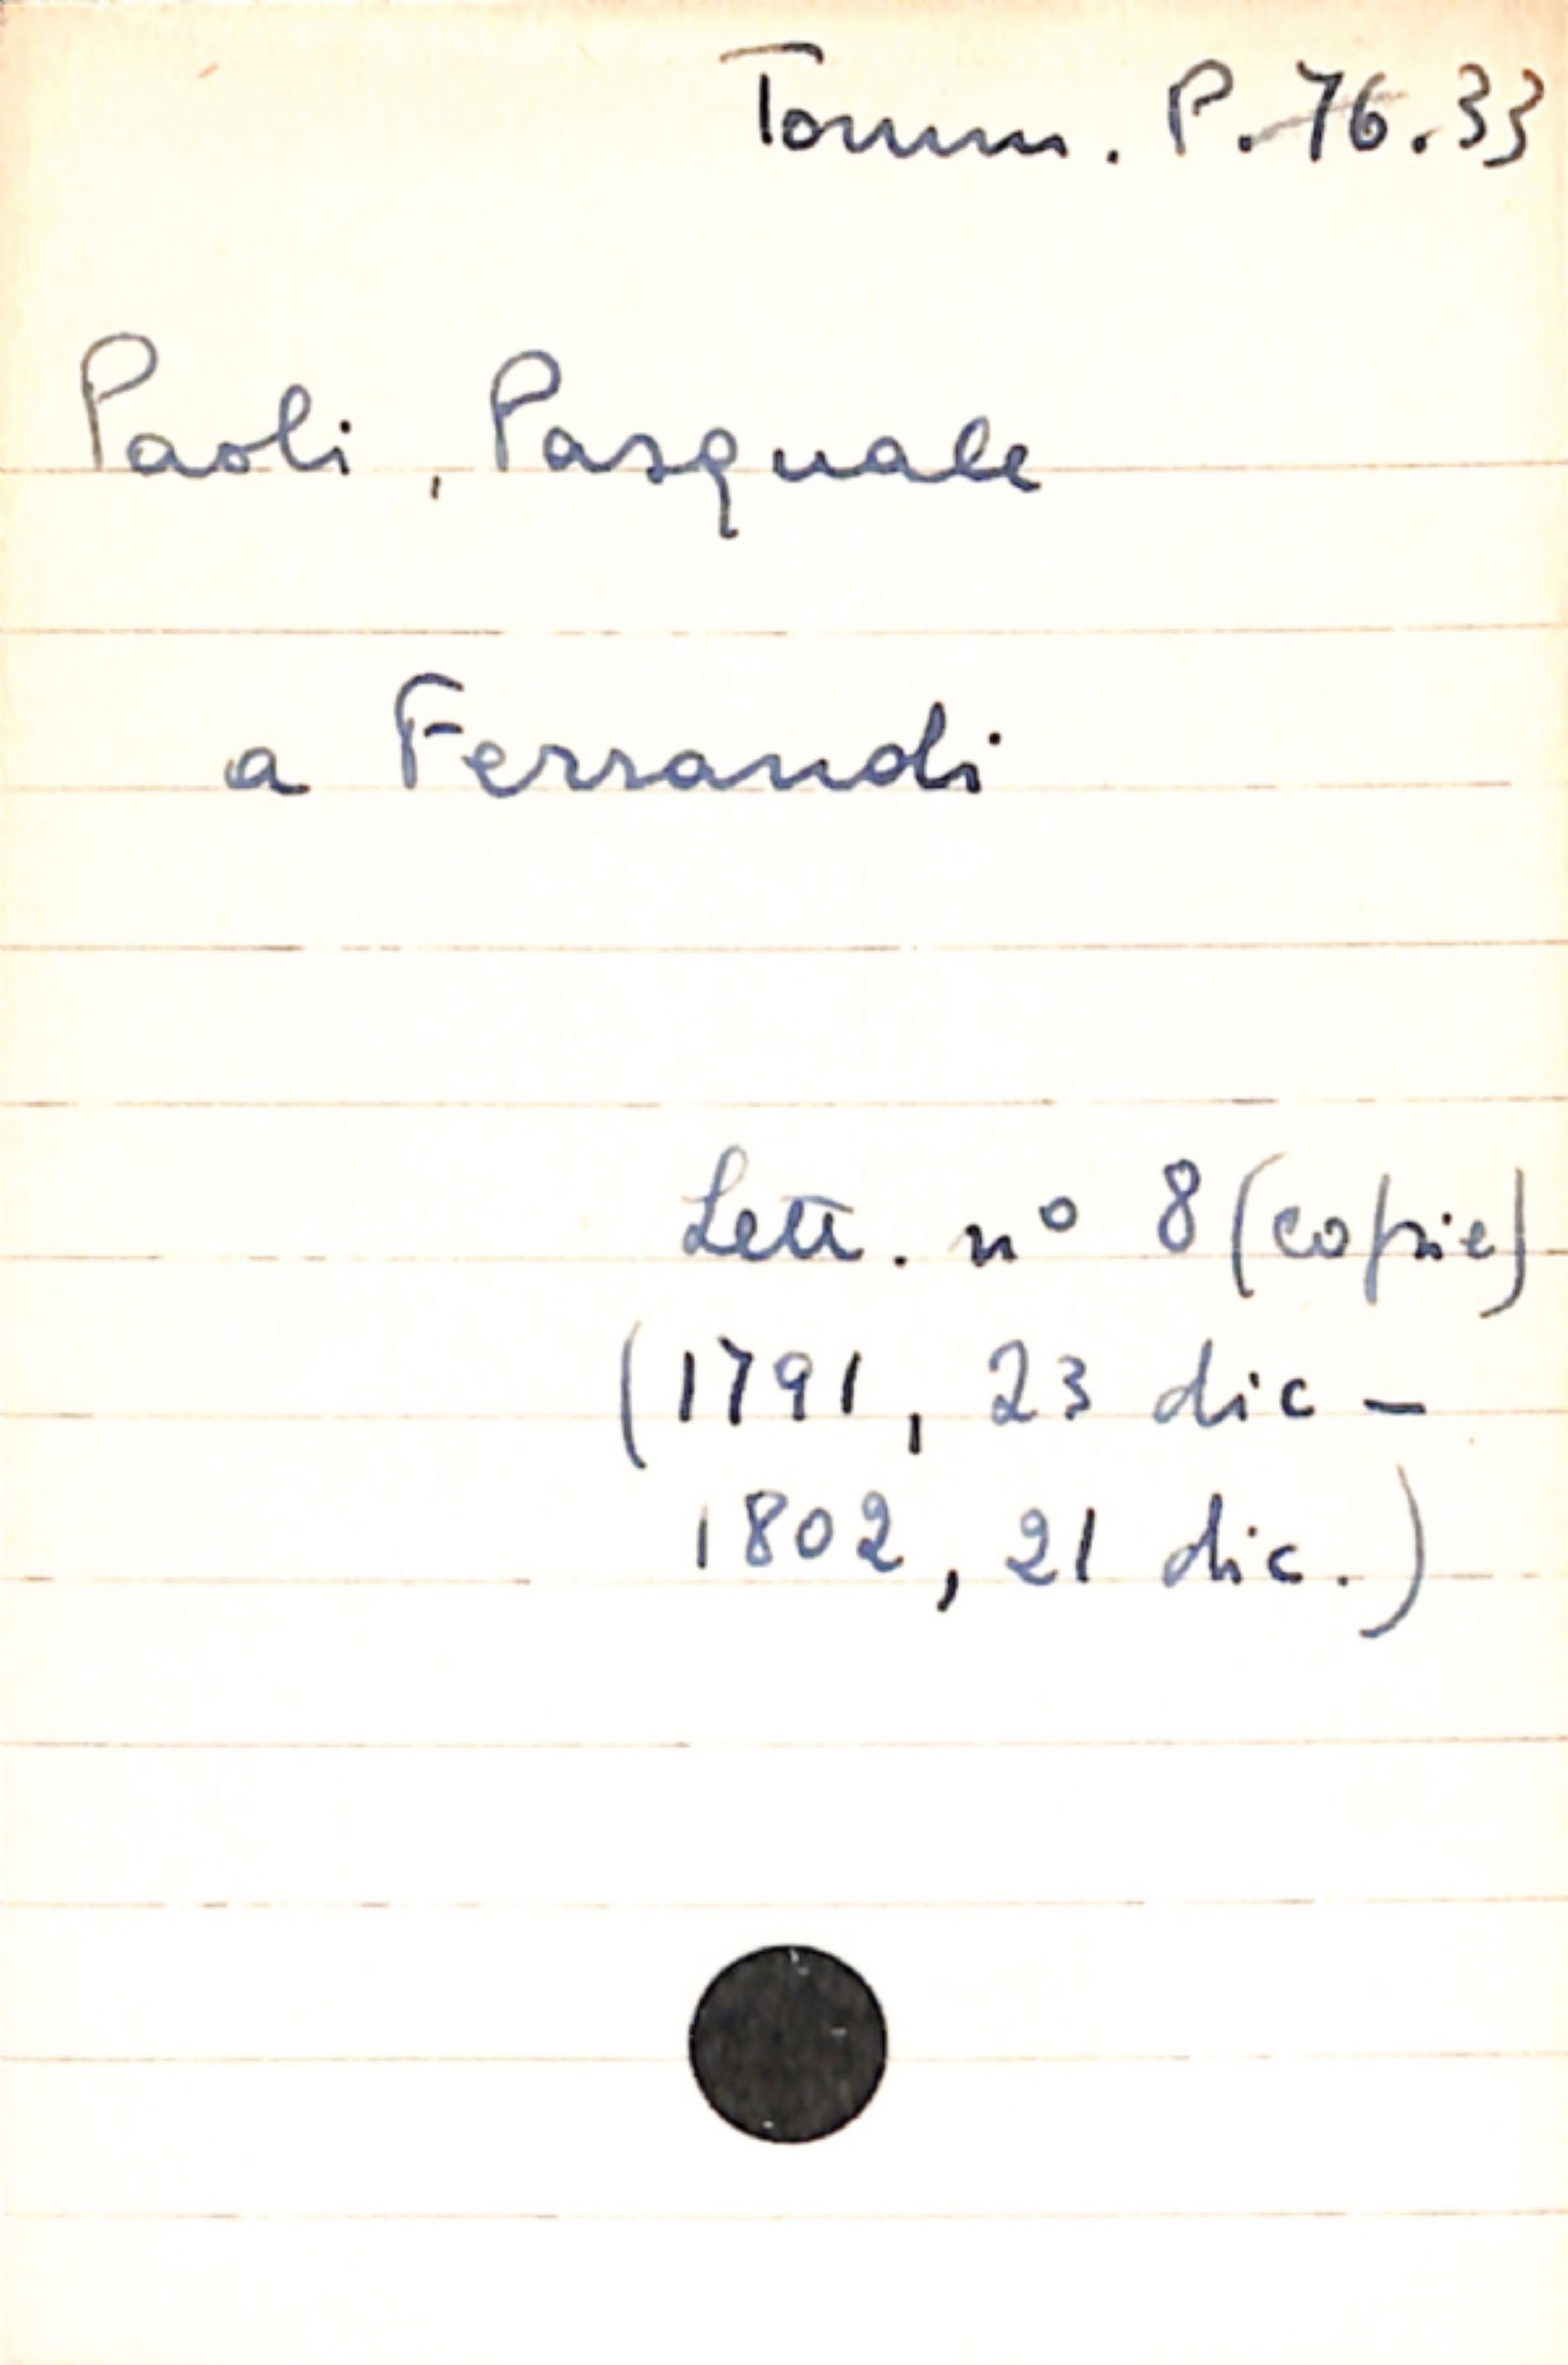 Tomm. P. 76.33
Paoli, Pasquale
a Ferrandi
Lett. nº 8 (copie)
(1791, 23 dic -
1802, 21 dic.)